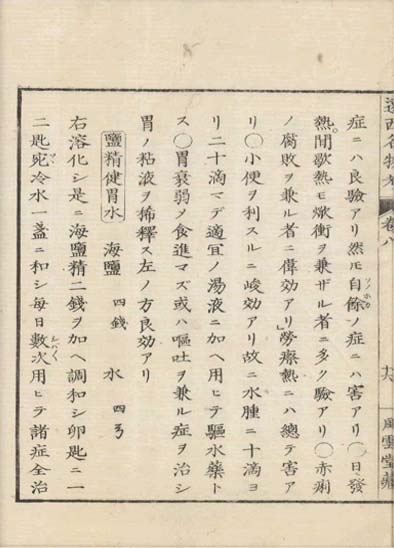 遠西名物考 卷八 十六 風雲堂藏
症ニハ良驗アリ然モ自餘ソノホカノ症ニハ害アリ〇日發
熱。間歇熱モ焮衝ヲ兼ザル者ニ多ク驗アリ〇赤痢
ノ腐敗ヲ兼ル者ニ偉効アリ」勞瘵熱ニハ總テ害ア
リ〇小便ヲ利スルニ峻効アリ故ニ水腫ニ十滴ヨ
リ二十滴マデ適宜ノ湯液ニ加ヘ用ヒテ驅水藥ト
ス〇胃衰弱メ食進マズ或ハ嘔吐ヲ兼ル症ヲ治シ
胃ノ粘液ヲ稀釋ス左ノ方良効アリ
鹽精健胃水 海鹽 四錢 水 四弓
右溶化シ是ニ海鹽精二錢ヲ加ヘ調和シ卵匙ニ一
二匙宛冷水一盞ニ和シ毎日數次用ヒテ諸症全治